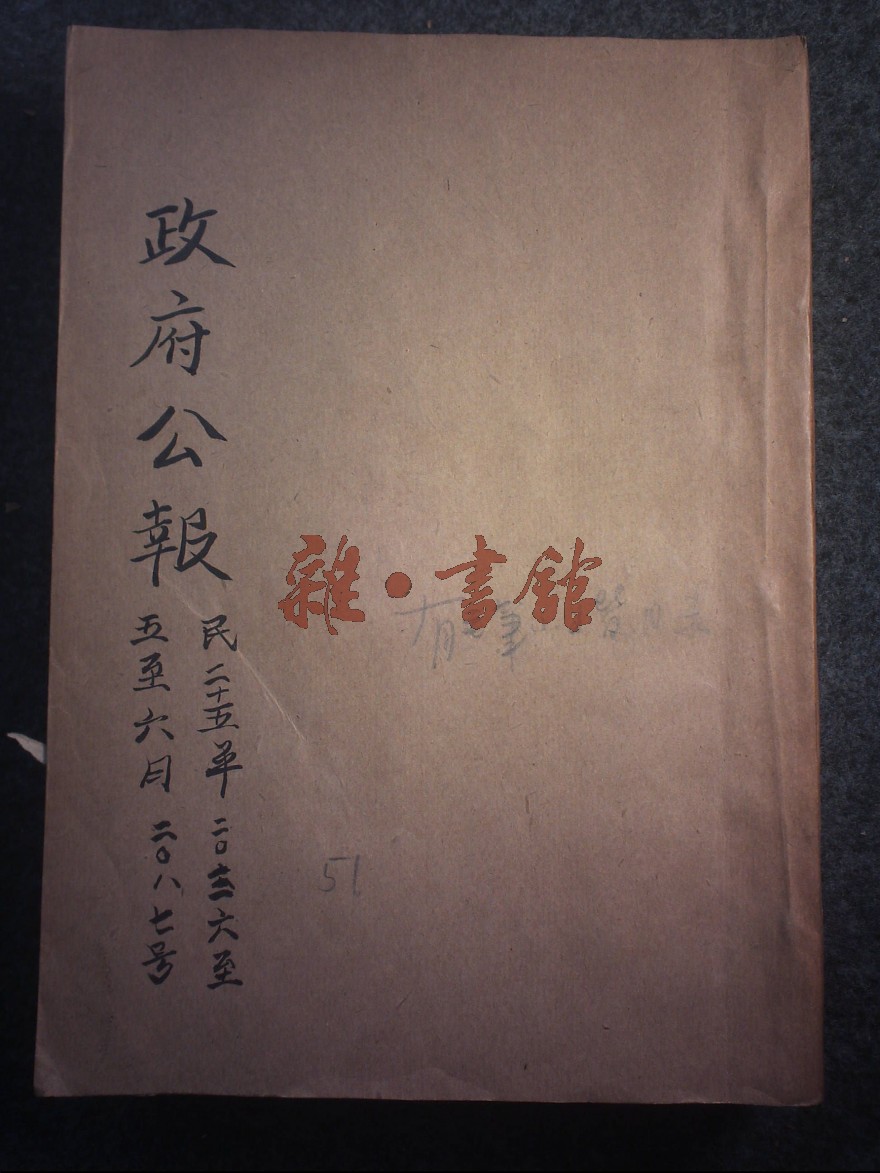 政府公報
民二十五年 二〇三六至
五至六月 二〇八七号
雜·書館
51